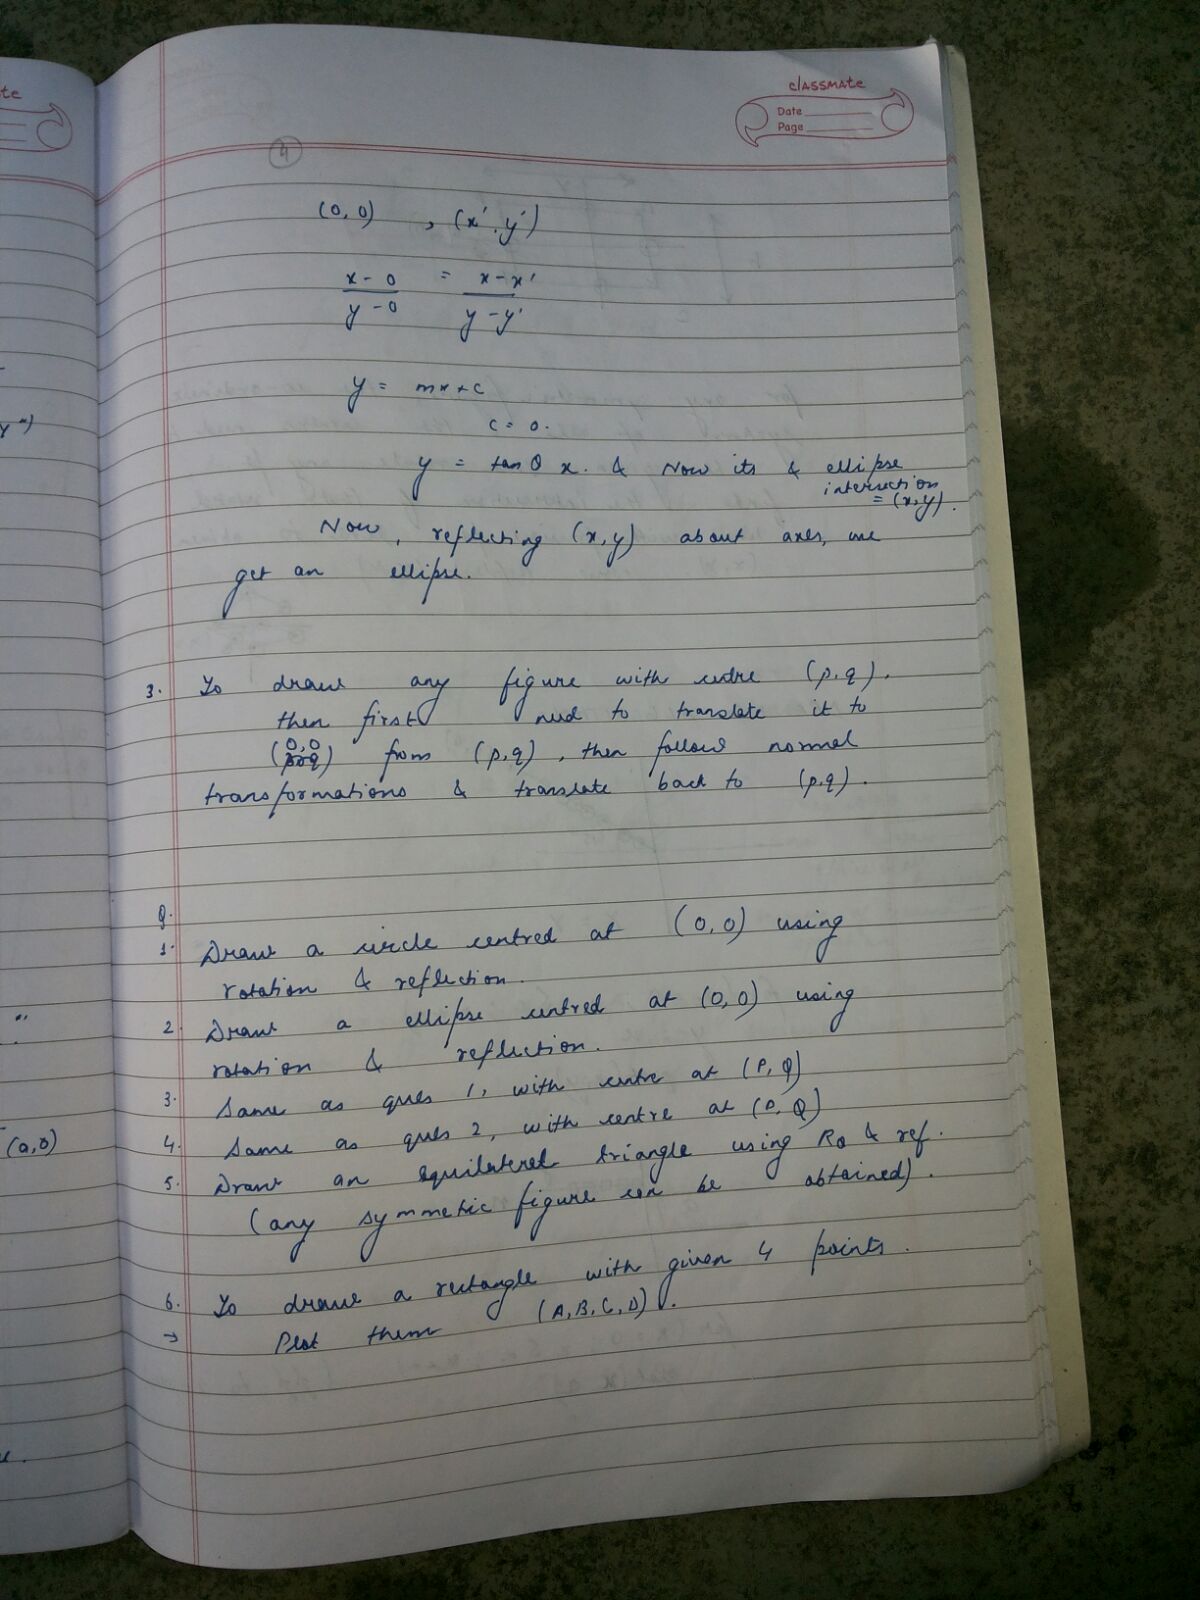 te
classmate
Date
Page
4
(0,0) , (x', y')
x - 0 = x - x'
y - 0 y - y'
y = mx + c
c = 0.
y = tan θ x. & Now its & ellipse
intersection
= (x,y).
Now, reflecting (x,y) about axes, we
get an ellipse.
3. To draw any figure with centre (p,q).
then first need to translate it to
(0,0) from (p,q), then follow normal
transformations & translate back to (p,q).
Q.
1. Draw a circle centred at (0,0) using
rotation & reflection.
2. Draw a ellipse centred at (0,0) using
rotation & reflection.
3. Same as ques 1, with centre at (P,Q)
4. Same as ques 2, with centre at (P,Q)
5. Draw an equilateral triangle using Rθ & ref.
(any symmetic figure can be obtained).
6. To draw a rectangle with given 4 points.
→ Plot them (A,B,C,D).
y")
(a,0)